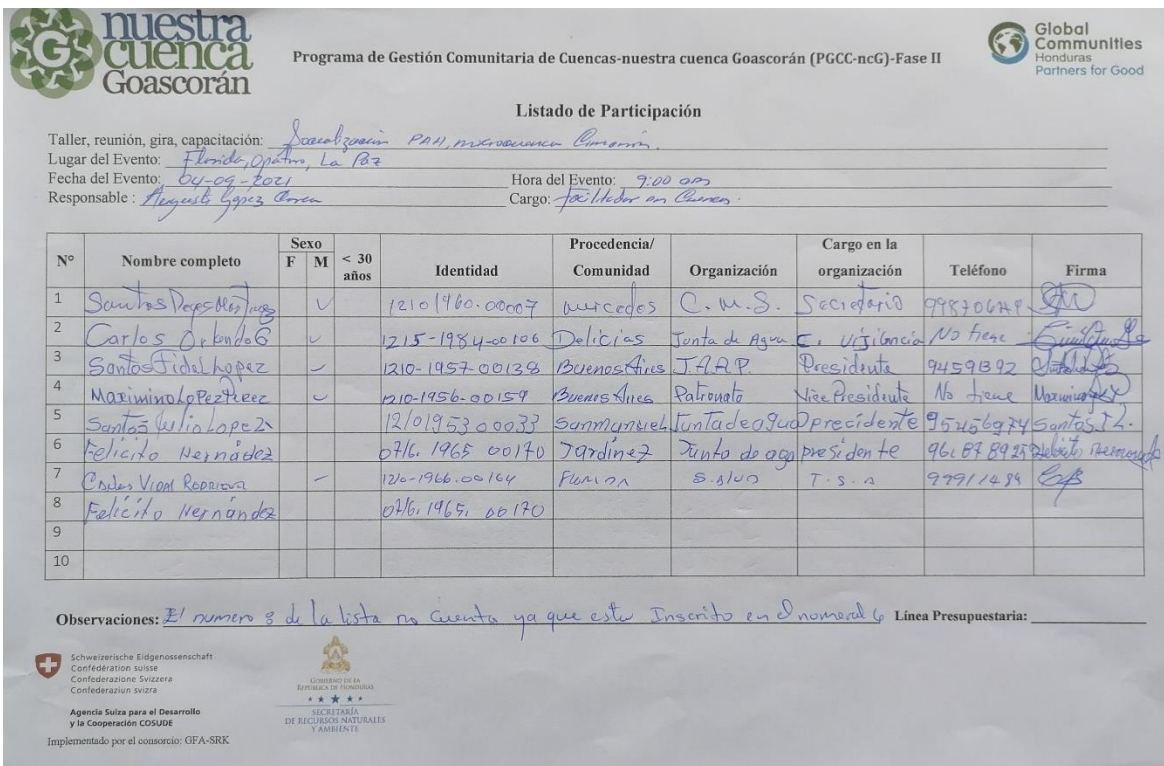 nuestra
cuenca
Goascorán
G
Programa de Gestión Comunitaria de Cuencas-nuestra cuenca Goascorán (PGCC-ncG)-Fase II
Global
Communities
Honduras
Partners for Good
Listado de Participación
Taller, reunión, gira, capacitación: PAH, microcuenca
Lugar del Evento: Florida, Opatoro, La Paz
Fecha del Evento: 04-09-2021 Hora del Evento: 9:00 am
Responsable: Lopez Cargo: facilitador en Cuencas.
N° Nombre completo Sexo F M < 30 años Identidad Procedencia/ Comunidad Organización Cargo en la organización Teléfono Firma
1 Santos 1210 1960.00007 mercedes C.M.S. Secretario
2 Carlos Orlando G 1215-1984-00106 Delicias Junta de Agua C. Vijilancia No tiene
3 Santos Fidel Lopez 1210-1957-00138 Buenos Aires J.A.A.P. Presidente 94591392
4 Maximino Lopez Perez 1210-1956-00159 Buenos Aires Patronato Vice Presidente No tiene
5 Santos Julio Lopez 12101953 00033 Sanmanuel Juntadeagua precidente 95456974 Santos J L.
6 Felicito Hernádez 0716. 1965 00170 Jardinez Junto de aga presidente 96. 87 8925
7 Carlos Vidal 1210-1966.00164 Florida S.alud T.S.A 99911484
8 Felicito Hernández 0716. 1965. 00170
9
10
Observaciones: El numero 8 de la lista no Cuenta ya que esta Inscrito en el nomeral 6 Línea Presupuestaria:
Schweizerische Eidgenossenschaft
Confédération suisse
Confederazione Svizzera
Confederaziun svizra
Agencia Suiza para el Desarrollo
y la Cooperación COSUDE
Implementado por el consorcio: GFA-SRK
GOBIERNO DE LA
REPÚBLICA DE HONDURAS
SECRETARÍA
DE RECURSOS NATURALES
Y AMBIENTE